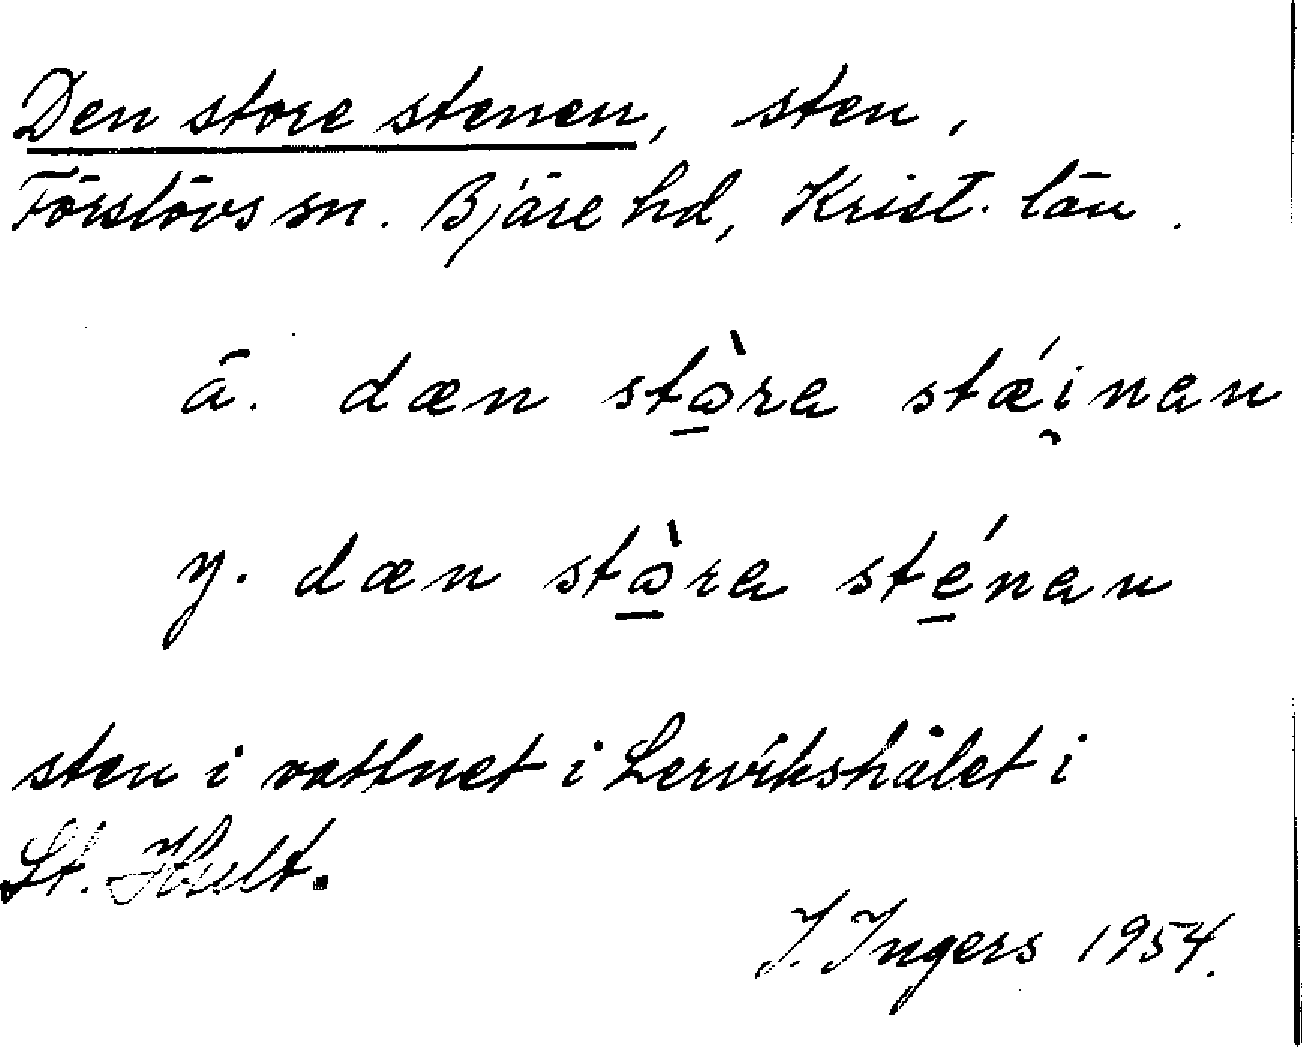 Den store stenen, sten,
Förslövs sn. Bjäre hd, Krist. län.
ä. dæn stɷ̀ra stǽi̯nan
y. dæn stɷ̀ra sténan
sten i vattnet i Lervikshålet i
St. Hult.
I. Ingers 1954.